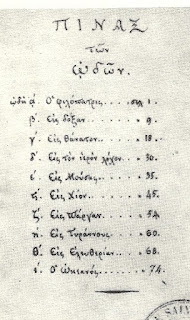 ΠΙΝΑΞ
τῶν
ᾠδῶν.
ᾠδὴ α΄. Ὁ φιλόπατρις..... σελ. 1.
β΄. Εἰς δόξαν ..... 9.
γ΄. Εἰς θάνατον ..... 18.
δ΄. Εἰς τὸν ἱερὸν λόχον . 30.
ε΄. Εἰς Μούσας ..... 35.
ς΄. Εἰς Χίον ..... 45.
ζ΄. Εἰς Πάργαν ..... 54.
η΄. Εἰς Τυράννους .... 60.
θ΄. Εἰς Ἐλευθερίαν ... 68.
ι΄. Ὁ Ὠκεανός ..... 74.